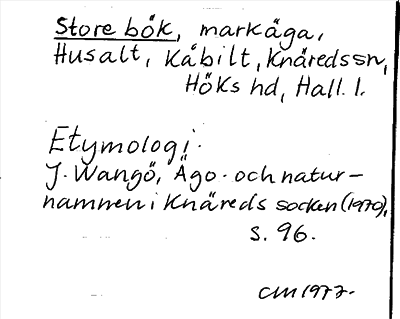 Store bök, markäga,
Husalt, Kåbilt, Knäredssn,
Höks hd, Hall. l.
Etymologi.
J. Wangö, Ägo- och natur-
namnen i Knäreds socken (1970),
s. 96.
CM 1977.